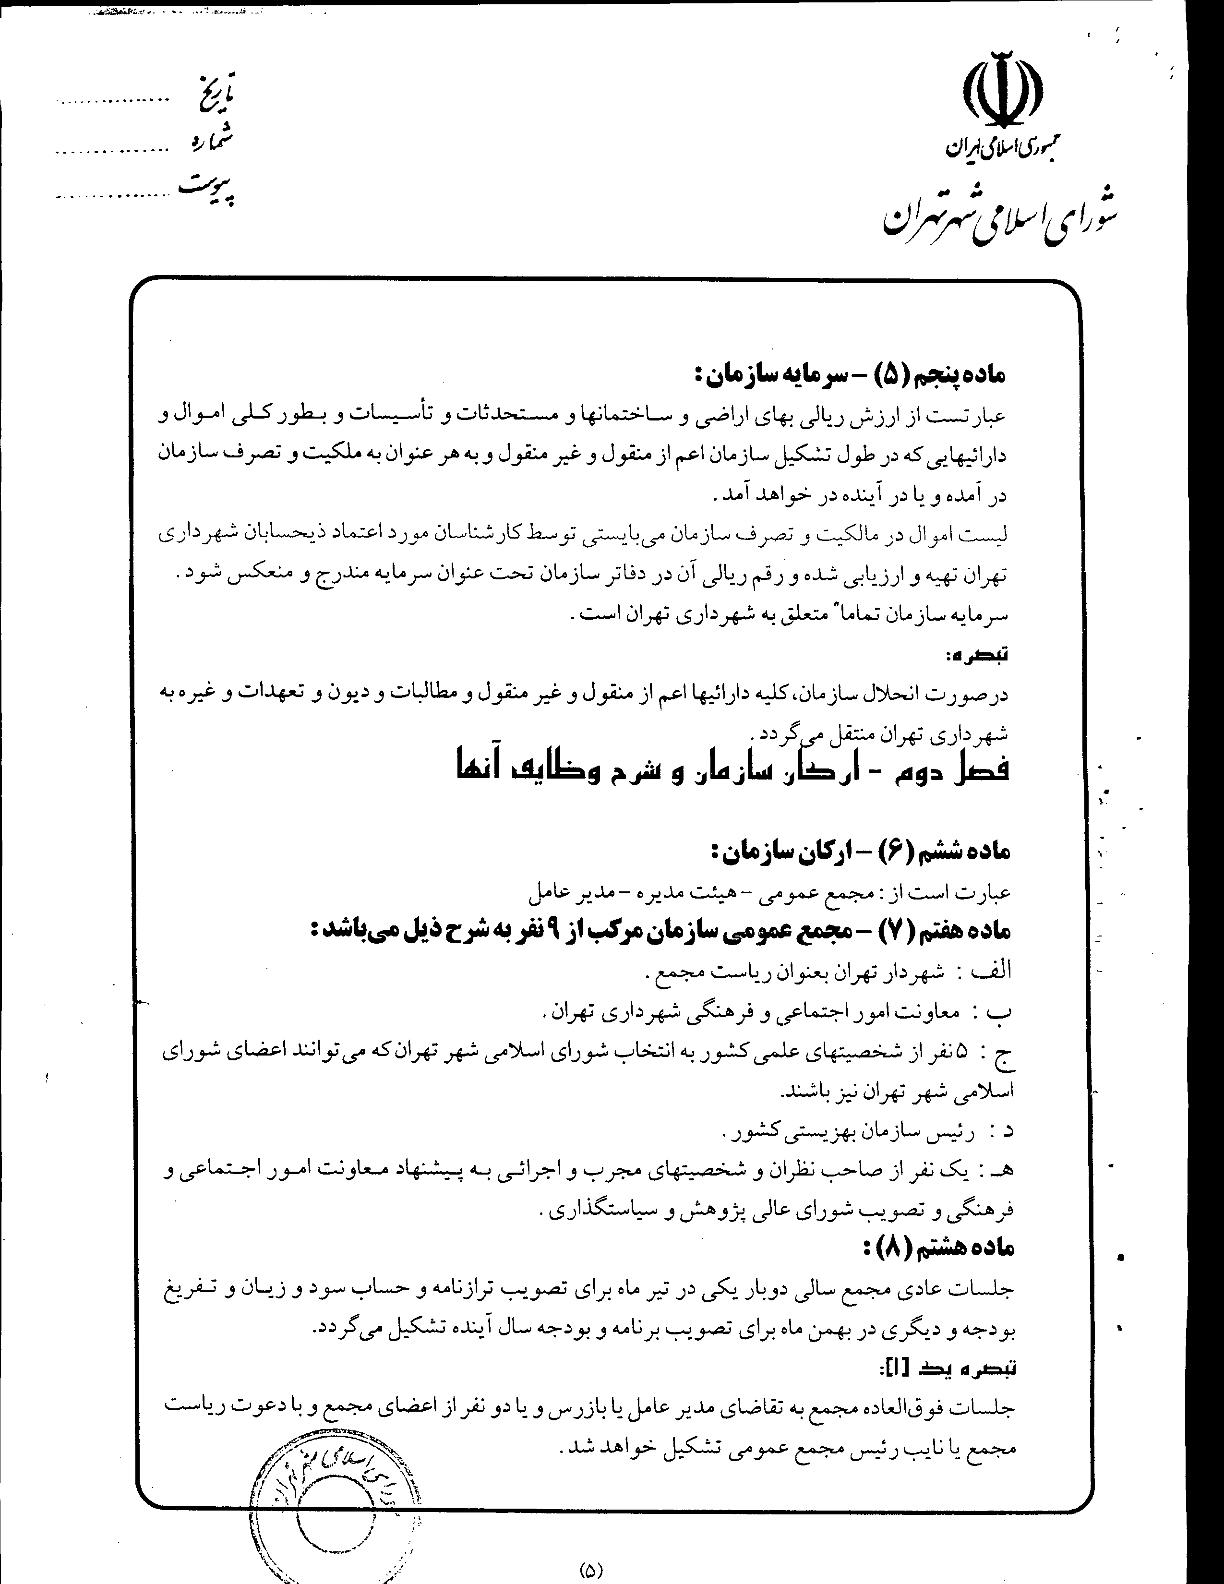 جمهوری اسلامی ایران
شورای اسلامی شهر تهران
تاریخ ................
شماره ................
پیوست ................
ماده پنجم (۵) – سرمایه سازمان :
عبارتست از ارزش ریالی بهای اراضی و ساختمانها و مستحدثات و تأسیسات و بطور کلی اموال و
دارائیهایی که در طول تشکیل سازمان اعم از منقول و غیر منقول و به هر عنوان به ملکیت و تصرف سازمان
در آمده و یا در آینده در خواهد آمد .
لیست اموال در مالکیت و تصرف سازمان می‌بایستی توسط کارشناسان مورد اعتماد ذیحسابان شهرداری
تهران تهیه و ارزیابی شده و رقم ریالی آن در دفاتر سازمان تحت عنوان سرمایه مندرج و منعکس شود .
سرمایه سازمان تماما" متعلق به شهرداری تهران است .
تبصره:
درصورت انحلال سازمان، کلیه دارائیها اعم از منقول و غیر منقول و مطالبات و دیون و تعهدات و غیره به
شهرداری تهران منتقل می‌گردد .
فصل دوم - ارکان سازمان و شرح وظایف آنها
ماده ششم (۶) – ارکان سازمان :
عبارت است از : مجمع عمومی – هیئت مدیره – مدیر عامل
ماده هفتم (۷) – مجمع عمومی سازمان مرکب از ۹ نفر به شرح ذیل می‌باشد :
الف : شهردار تهران بعنوان ریاست مجمع .
ب : معاونت امور اجتماعی و فرهنگی شهرداری تهران .
ج : ۵ نفر از شخصیتهای علمی کشور به انتخاب شورای اسلامی شهر تهران که می‌توانند اعضای شورای
اسلامی شهر تهران نیز باشند.
د : رئیس سازمان بهزیستی کشور .
هـ : یک نفر از صاحب نظران و شخصیتهای مجرب و اجرائی به پیشنهاد معاونت امور اجتماعی و
فرهنگی و تصویب شورای عالی پژوهش و سیاستگذاری .
ماده هشتم (۸) :
جلسات عادی مجمع سالی دوبار یکی در تیر ماه برای تصویب ترازنامه و حساب سود و زیان و تفریغ
بودجه و دیگری در بهمن ماه برای تصویب برنامه و بودجه سال آینده تشکیل می‌گردد.
تبصره یک [۱]:
جلسات فوق‌العاده مجمع به تقاضای مدیر عامل یا بازرس و یا دو نفر از اعضای مجمع و با دعوت ریاست
مجمع یا نایب رئیس مجمع عمومی تشکیل خواهد شد .
شورای اسلامی شهر تهران
(۵)